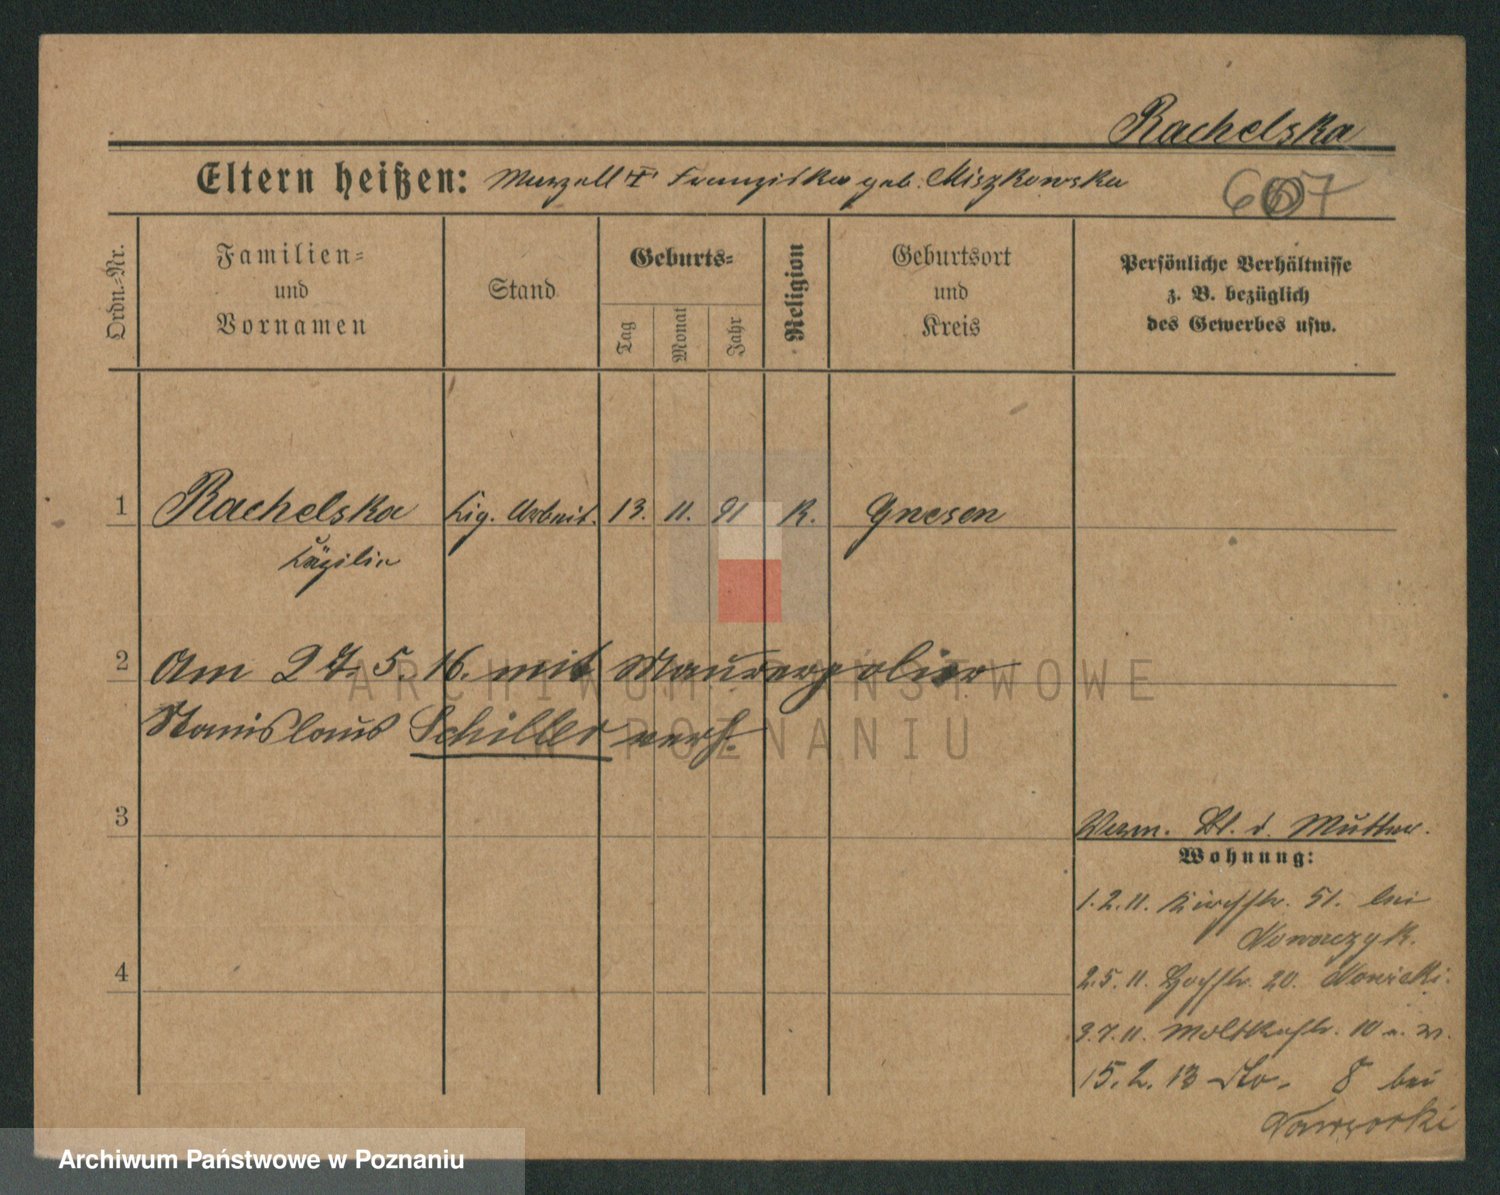 Rachelska
Eltern heißen: Marzell † Franziska geb. Miszkowska
607
Ordn.-Nr.
Familien-
und
Vornamen
Stand
Geburts-
Tag
Monat
Jahr
Religion
Geburtsort
und
Kreis
Persönliche Verhältnisse
z. B. bezüglich
des Gewerbes usw.
1 Rachelska Zig. Arbeit. 13. 11. 91 K. Gnesen
Cäzilie
2 Am 27. 5. 16. mit Maurerpolier
Stanislaus Schiller verh.
3
Verm. Bl. d. Mutter.
Wohnung:
1. 2. 11. Kirchstr. 51. bei
Nowaczyk.
4
2. 5. 11. Hochstr. 20. Nowicki.
3. 7. 11. Moltkestr. 10 a. w.
15. 2. 13 Do. 8 bei
Nawrocki
ARCHIWUM PAŃSTWOWE
W POZNANIU
Archiwum Państwowe w Poznaniu